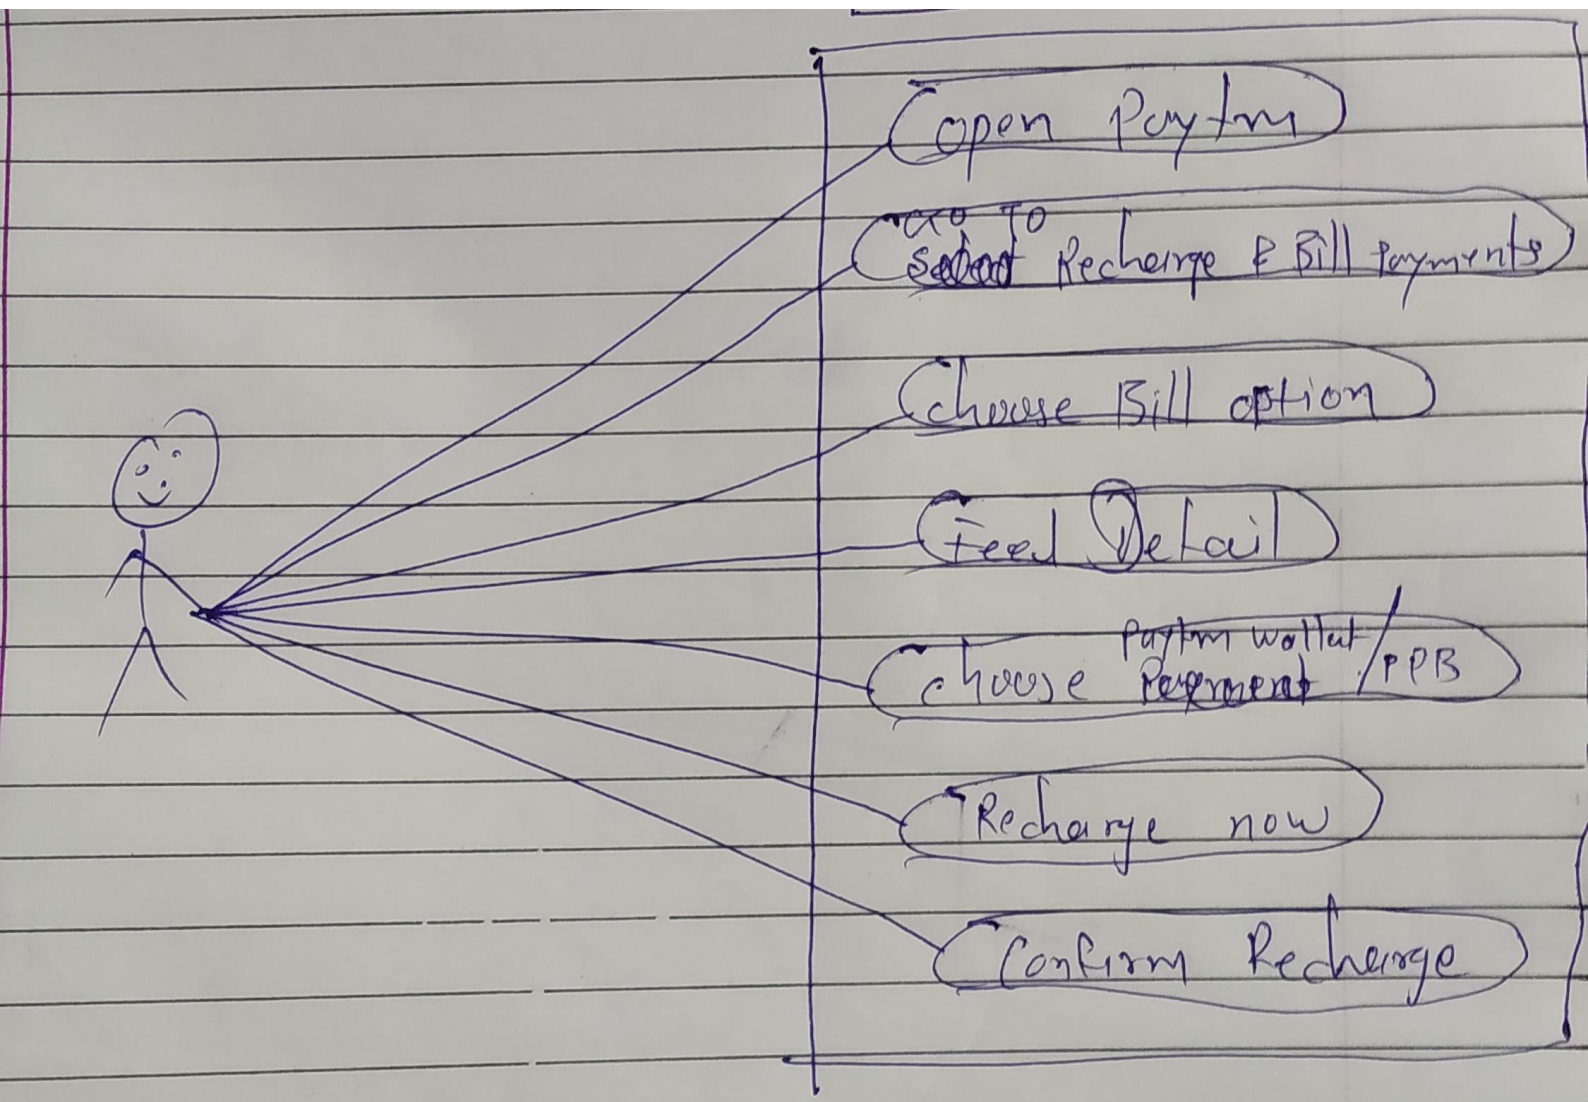 open Paytm
Go To
Recharge & Bill Payments
Choose Bill option
Feed Detail
Paytm Wallet
Choose / PPB
Recharge now
Confirm Recharge